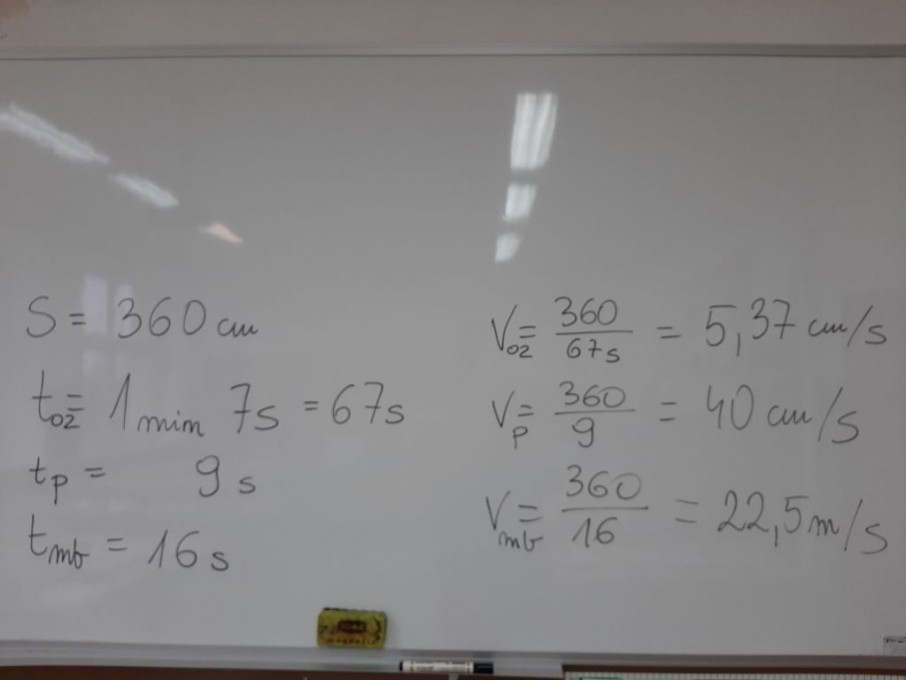 S = 360 cm
t_oz = 1 min 7s = 67s
t_p = 9 s
t_mb = 16 s
V_oz = 360/67s = 5,37 cm/s
V_p = 360/9 = 40 cm/s
V_mb = 360/16 = 22,5 m/s